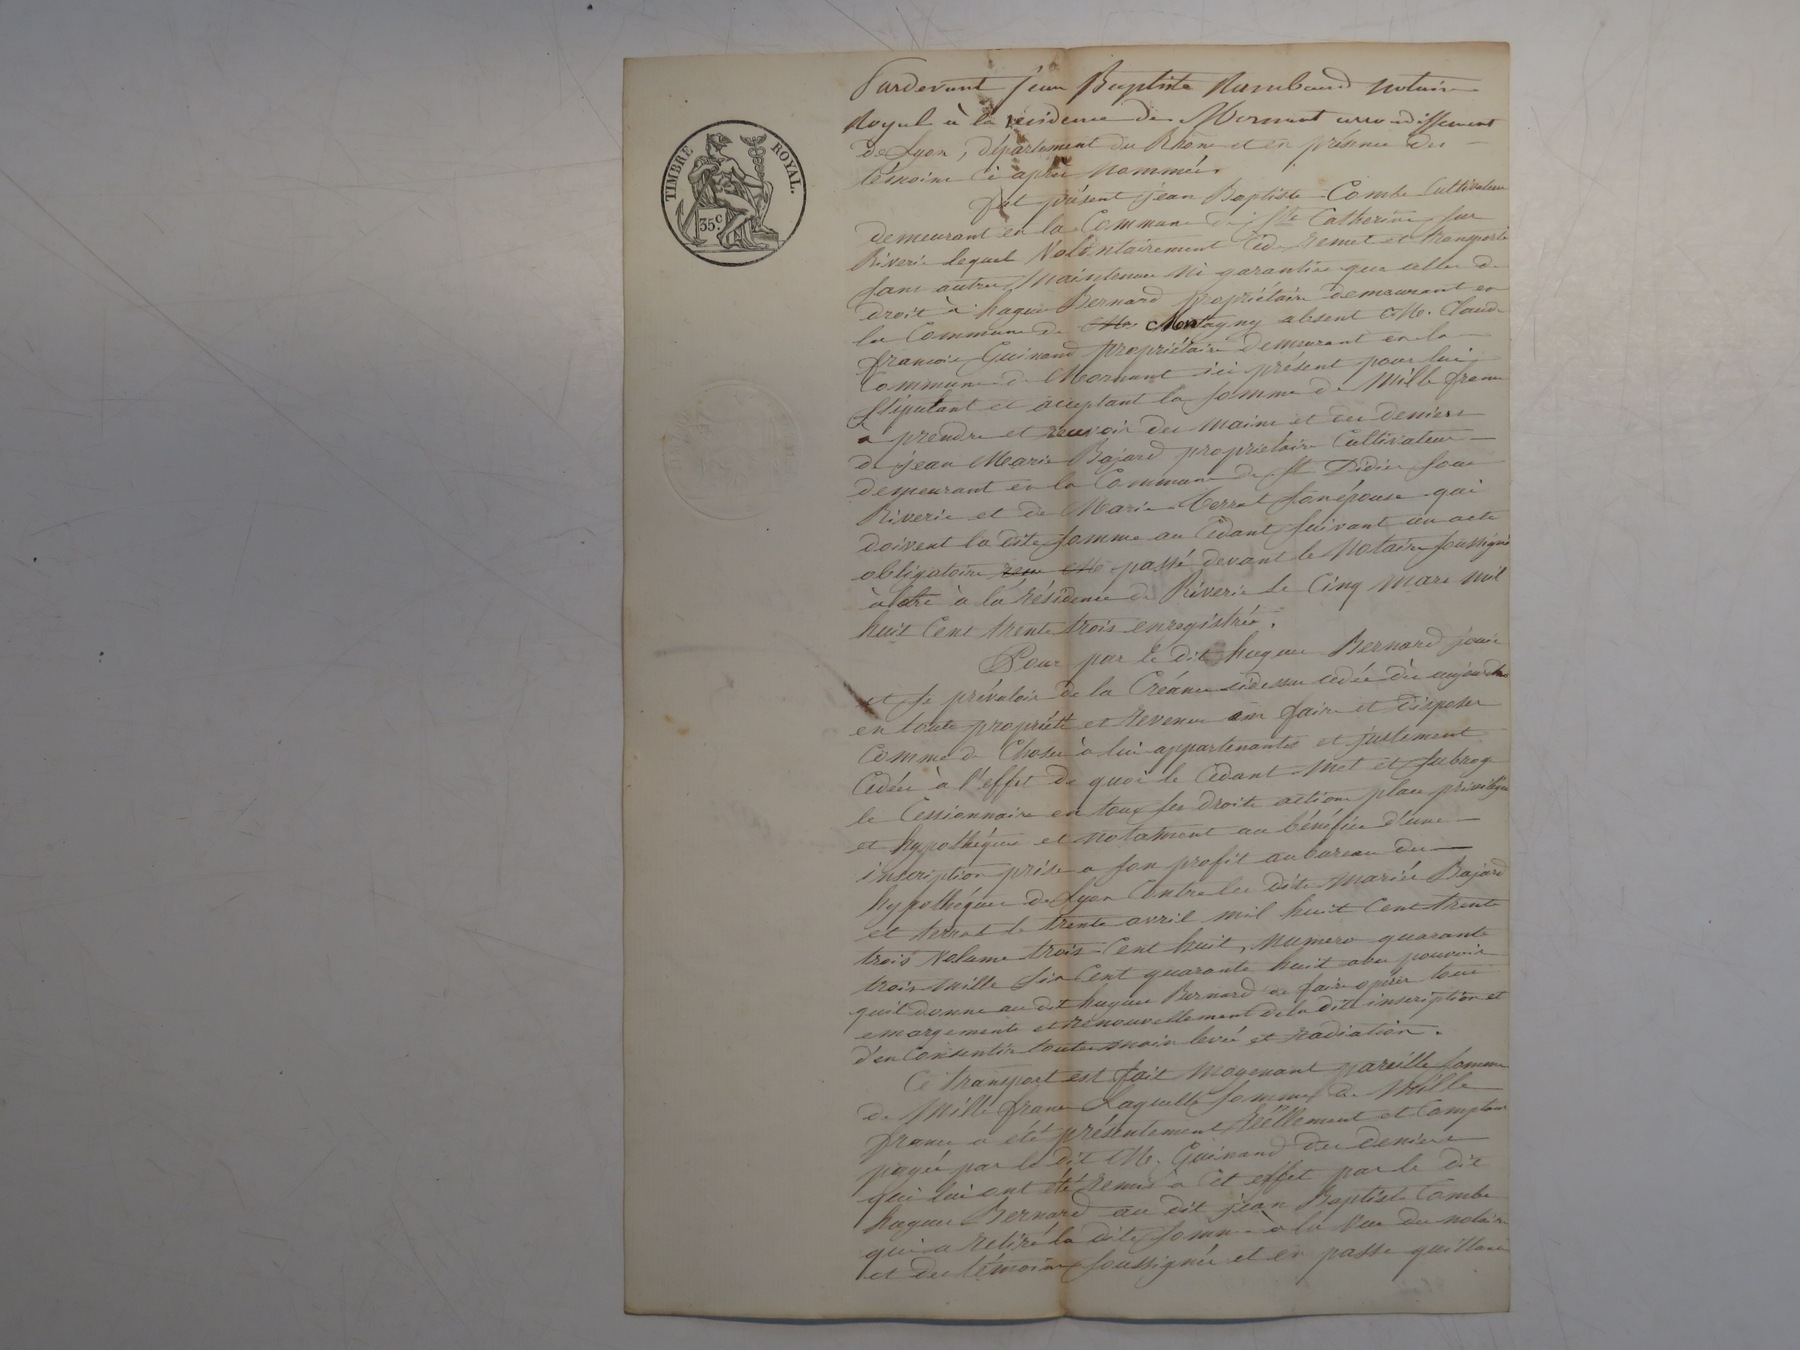 TIMBRE ROYAL.
35c.
Pardevant jean Baptiste Rambaud notaire
Royal à la résidence de Mornant arrondissement
de Lyon, département du Rhône et en présence des
témoins ci après nommés.
fut présent jean Baptiste Combe Cultivateur
demeurant en la Commune de Ste Catherine sur
Riverie lequel Volontairement Cède remet et transporte
sans autres maintenue ni garanties que celles de
droit à hugues Bernard propriétaire demeurant en
la Commune de Montagny absent Me. Claude
françois Guinand propriétaire demeurant en la
Commune de Mornant ici présent pour lui
stipulant et acceptant la somme de Mille francs
a prendre et recevoir des mains et des deniers
de jean Marie Bajard propriétaire Cultivateur
demeurant en la Commune de St Didier sous
Riverie et de Marie Terrat son épouse qui
doivent la dite somme au Cédant suivant un acte
obligatoire passé devant le Notaire soussigné
alors à la résidence de Riverie le Cinq mars mil
huit Cent trente trois enregistrée.
Pour par le dit hugues Bernard jouir
et se prévaloir de la Créance cidessus cédée dès aujourdhui
en toute propriété et revenus en faire et disposer
Comme de Choses à lui appartenantes et justement
Cédées à l'effet de quoi le Cédant met et subroge
le Cessionnaire en tous ses droits actions place privilèges
et hypothéques et notament au bénéfice d'une
inscription prise a son profit au bureau des
hypothéques de Lyon Contre les dits mariés Bajard
et terrat le trente avril mil huit Cent trente
trois Volume trois Cent huit, Numero quarante
trois mille six Cent quarante huit avec pouvoir
quil donne au dit hugues Bernard de faire opérer tous
emargements et renouvellement de la dite inscription et
d'en Consentir toutes main levée et radiation.
Ce transport est fait moyenant pareille somme
de Mille francs Laquelle somme de Mille
francs a été présentement réellement et Comptant
payée par le dit Me. Guinand des deniers
qui lui ont été remis à Cet effet par le dit
hugues Bernard au dit jean Baptiste Combe
qui a retiré la dite somme à la Vue du notaire
et des témoins soussignés et en passe quittance